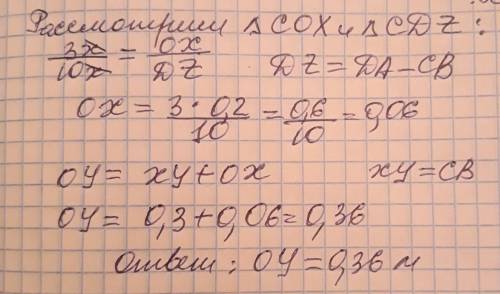 Рассмотрим △COX и △CDZ:
3x/10x = OX/DZ DZ = DA - CB
OX = 3 · 0,2/10 = 0,6/10 = 0,06
OY = XY + OX XY = CB
OY = 0,3 + 0,06 = 0,36
Ответ: OY = 0,36 м